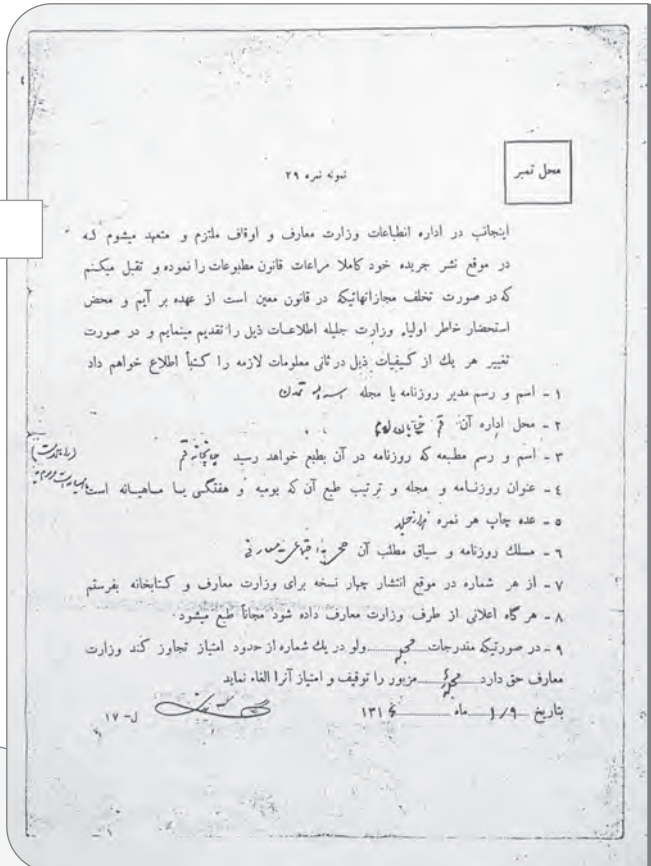 محل تمبر
نمونه نمره ۲۹
اینجانب در اداره انطباعات وزارت معارف و اوقاف ملتزم و متعهد میشوم که
در موقع نشر جریده خود کاملا مراعات قانون مطبوعات را نموده و تقبل میکنم
که در صورت تخلف مجازاتهائیکه در قانون معین است از عهده بر آیم و محض
استحضار خاطر اولیاء وزارت جلیله اطلاعات ذیل را تقدیم مینمایم و در صورت
تغییر هر یك از کیفیات ذیل در ثانی معلومات لازمه را کتباً اطلاع خواهم داد
۱ - اسم و رسم مدیر روزنامه یا مجله
۲ - محل اداره آن قم
۳ - اسم و رسم مطبعه که روزنامه در آن بطبع خواهد رسید چاپخانه قم
٤ - عنوان روزنامه و مجله و ترتیب طبع آن که یومیه و هفتگی یا ماهیانه است
٥ - عده چاپ هر نمره
٦ - مسلك روزنامه و سیاق مطلب آن
۷ - از هر شماره در موقع انتشار چهار نسخه برای وزارت معارف و کتابخانه بفرستم
۸ - هر گاه اعلانی از طرف وزارت معارف داده شود مجاناً طبع میشود
۹ - در صورتیکه مندرجات مجله ولو در یك شماره از حدود امتیاز تجاوز کند وزارت
معارف حق دارد مجله مزبور را توقیف و امتیاز آنرا الغاء نماید
بتاریخ ۱/۹ ماه ۱۳۱
ل- ۱۷